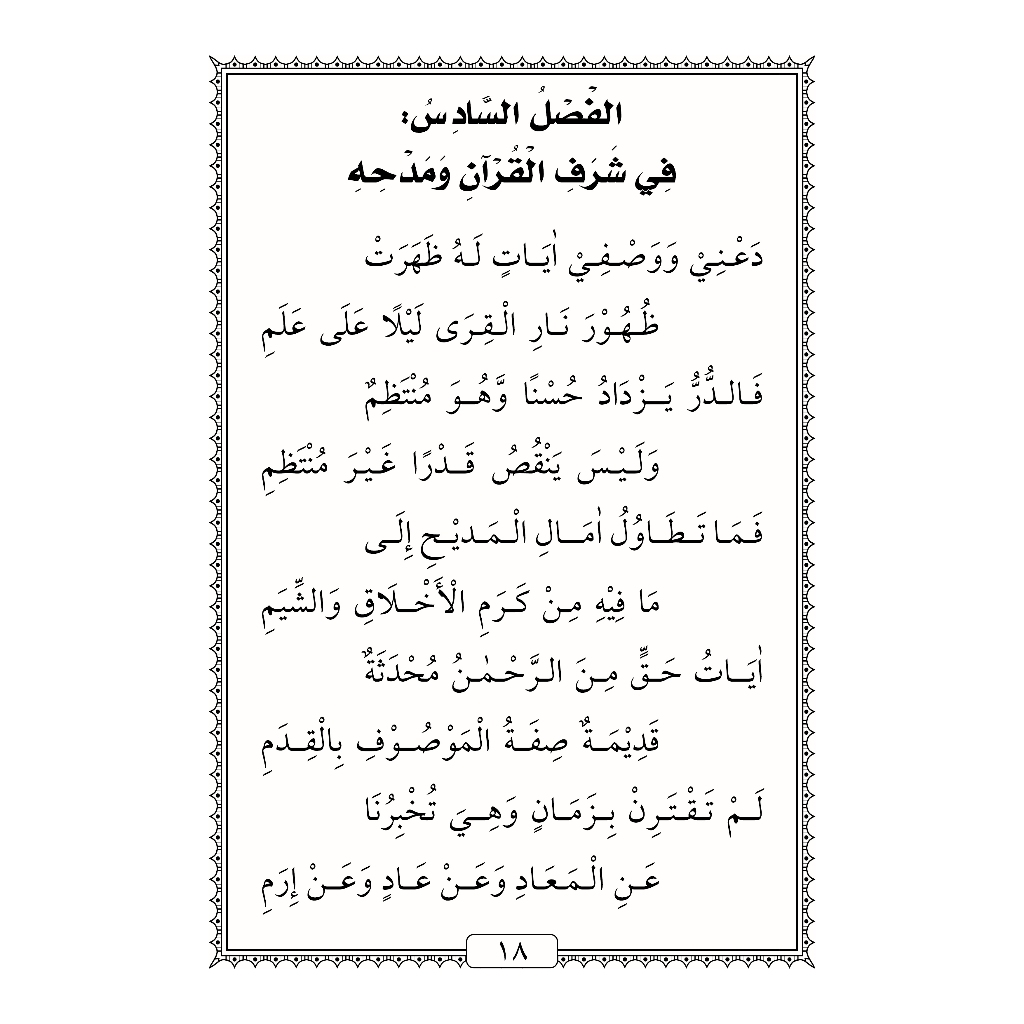 الْفَصْلُ السَّادِسُ:
فِي شَرَفِ الْقُرْآنِ وَمَدْحِهِ
دَعْنِيْ وَوَصْفِيْ اٰيَاتٍ لَهُ ظَهَرَتْ
ظُهُوْرَ نَارِ الْقِرَى لَيْلًا عَلَى عَلَمِ
فَالدُّرُّ يَزْدَادُ حُسْنًا وَّهُوَ مُنْتَظِمٌ
وَلَيْسَ يَنْقُصُ قَدْرًا غَيْرَ مُنْتَظِمِ
فَمَا تَطَاوُلُ اٰمَالِ الْمَدِيْحِ إِلَى
مَا فِيْهِ مِنْ كَرَمِ الْأَخْلَاقِ وَالشِّيَمِ
اٰيَاتُ حَقٍّ مِنَ الرَّحْمٰنُ مُحْدَثَةٌ
قَدِيْمَةٌ صِفَةُ الْمَوْصُوْفِ بِالْقِدَمِ
لَمْ تَقْتَرِنْ بِزَمَانٍ وَهِيَ تُخْبِرُنَا
عَنِ الْمَعَادِ وَعَنْ عَادٍ وَعَنْ إِرَمِ
١٨